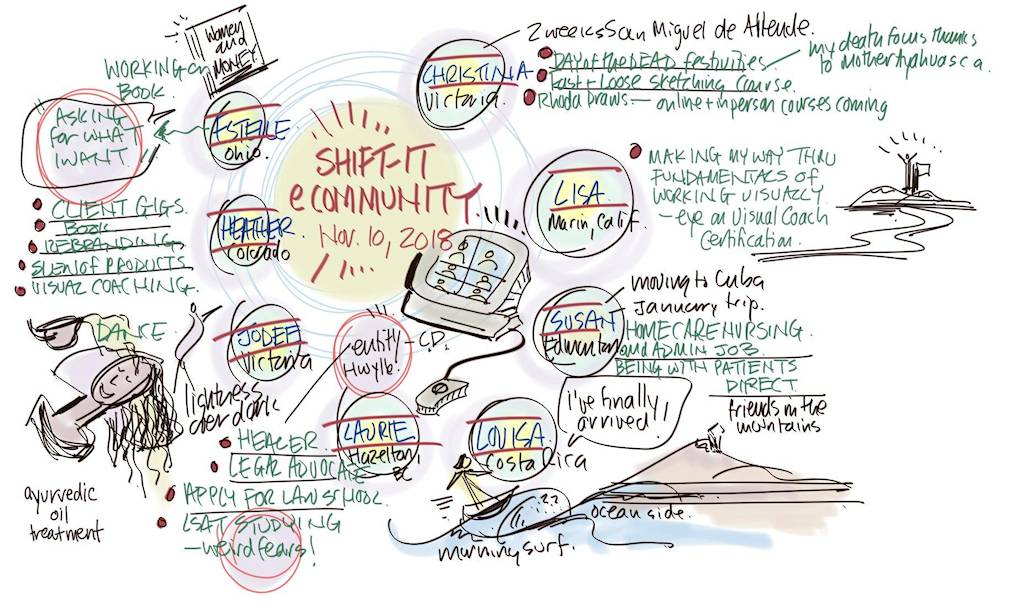 SHIFT-IT
eCOMMUNITY
Nov. 10, 2018
Women
and
MONEY
WORKING on
BOOK.
ASKING
for WHAT
I WANT.
ESTELLE
Ohio.
CHRISTINA
Victoria.
2 weeks San Miguel de Allende.
DAY of the DEAD festivities
Fast + Loose sketching course.
Rhoda Draws — online + in person courses coming
my death focus thanks
to mother Ayahuasca.
LISA
Marin, Calif.
MAKING MY WAY THRU
FUNDAMENTALS OF
WORKING VISUALLY
— eye on Visual Coach
Certification.
HEATHER
Colorado
CLIENT GIGS.
BOOK
REBRANDING
SUEN of PRODUCTS
VISUAL COACHING.
SUSAN
Edmonton
moving to Cuba
January trip.
HOMECARE NURSING
and ADMIN JOB.
BEING WITH PATIENTS
DIRECT
friends in the
mountains
JODEE
Victoria
DANCE
lightness
over dark
ayurvedic
oil
treatment
entity — C.D.
Hwylb!
LAURIE
Hazelton,
BC
HEALER
LEGAL ADVOCATE
APPLY FOR LAW SCHOOL
LSAT STUDYING
— weird fears!
LOUISA
Costa Rica
i've finally
arrived!
ocean side.
morning surf.